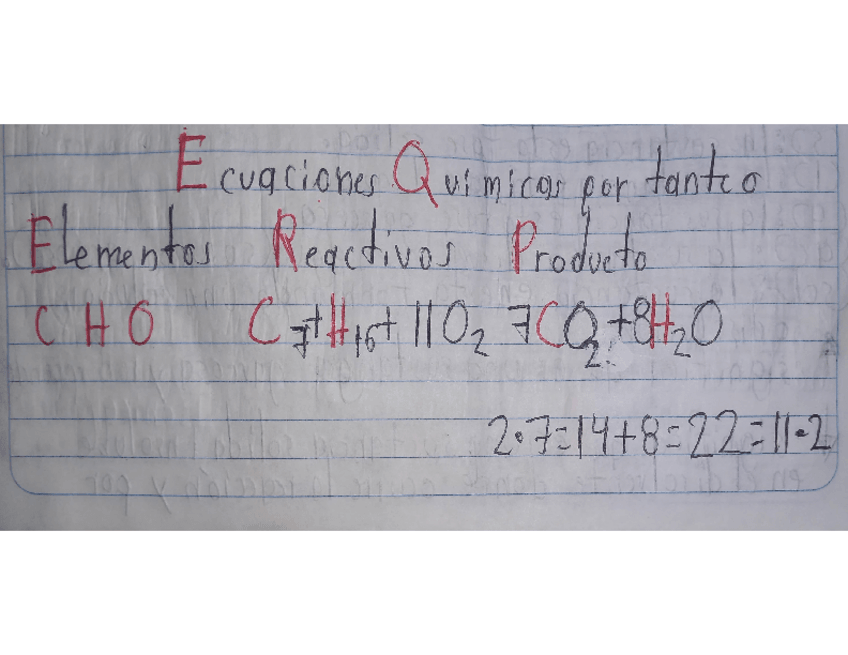 Ecuaciones Quimicas por tanteo
Elementos Reactivos Producto
C H O C₇+H₁₆+11O₂ 7CO₂+8H₂O
2·7=14+8=22=11·2